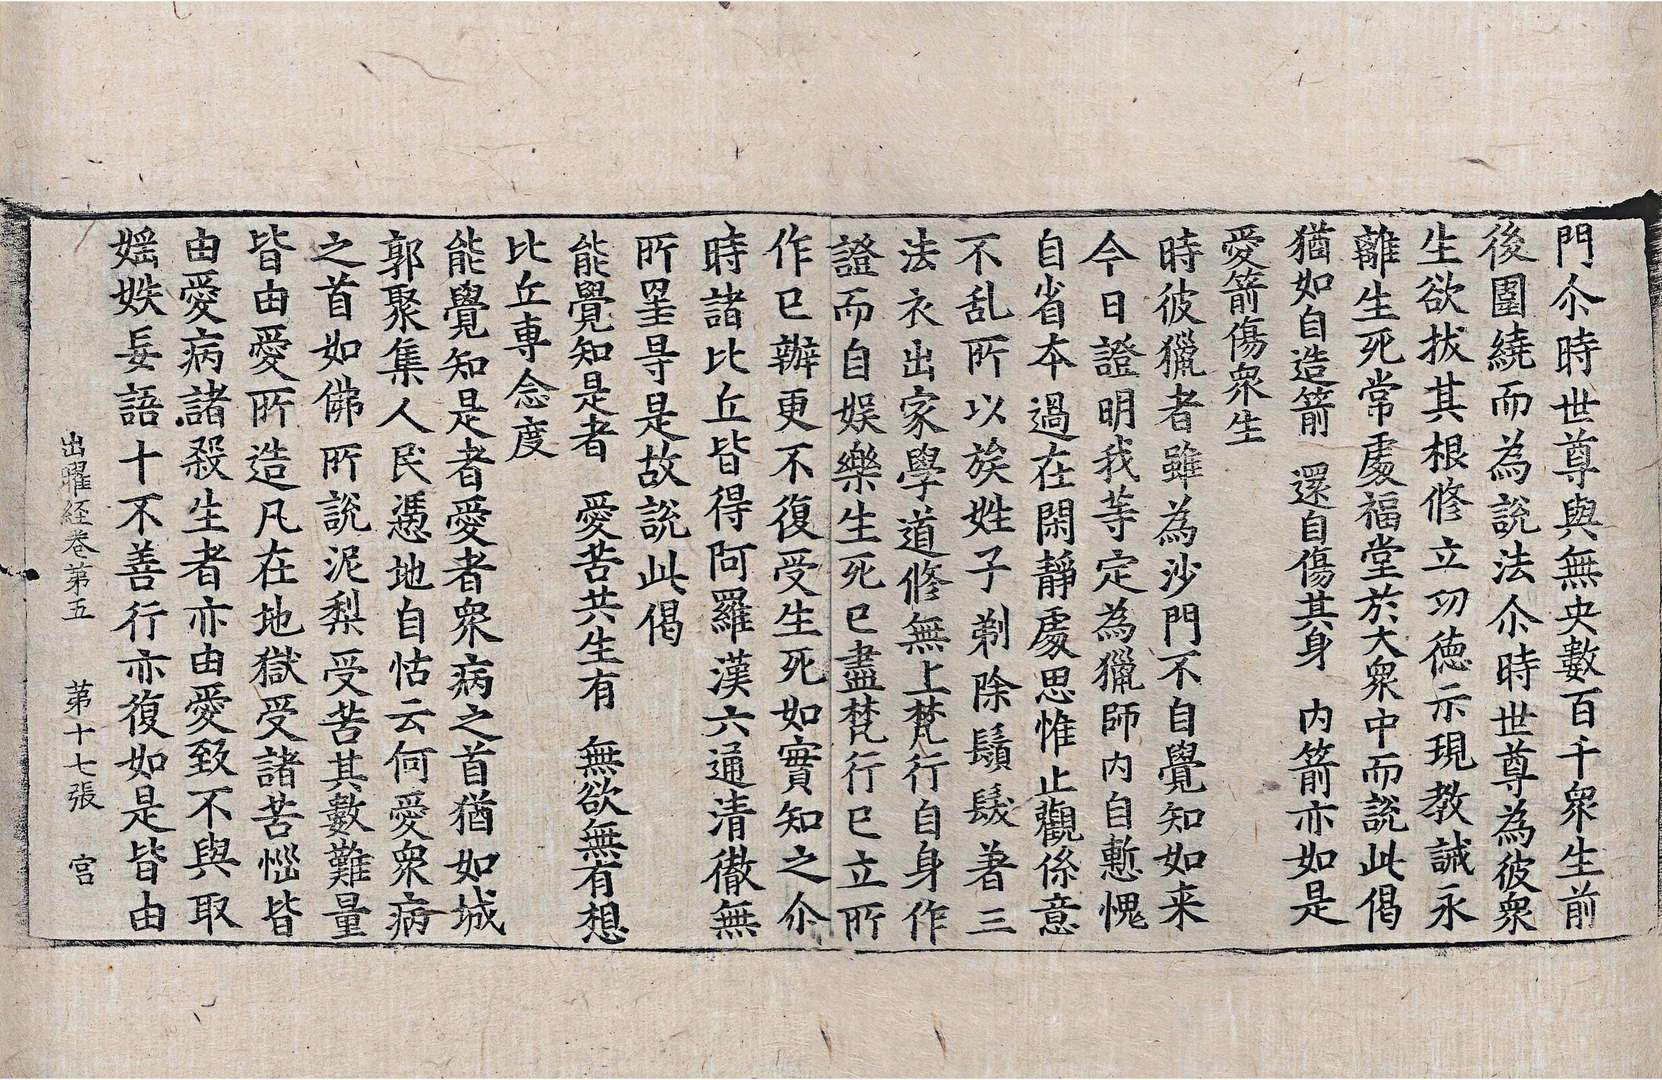 門尒時世尊與無央數百千衆生前
後圍繞而為說法尒時世尊為彼衆
生欲拔其根修立功徳示現教誡永
離生死常處福堂於大衆中而說此偈
猶如自造箭　還自傷其身　内箭亦如是
愛箭傷衆生
時彼獵者雖為沙門不自覺知如来
今日證明我等定為獵師内自慙愧
自省本過在閑靜處思惟止觀係意
不乱所以族姓子剃除鬚髮著三
法衣出家學道修無上梵行自身作
證而自娛樂生死已盡梵行已立所
作已辦更不復受生死如實知之尒
時諸比丘皆得阿羅漢六通清徹無
所罣㝵是故說此偈
能覺知是者　愛苦共生有　無欲無有想
比丘專念度
能覺知是者愛者衆病之首猶如城
郭聚集人民憑地自怙云何愛衆病
之首如佛所說泥梨受苦其數難量
皆由愛所造凡在地獄受諸苦惱皆
由愛病諸殺生者亦由愛致不與取
婬妷妄語十不善行亦復如是皆由
出曜経卷第五　第十七張　宮